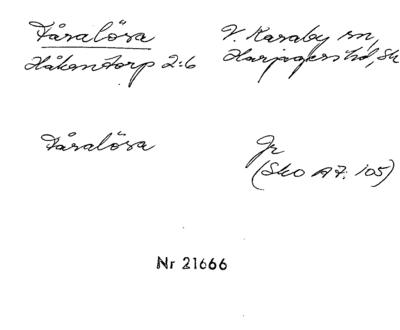 Fåralösa V. Karaby sn,
Håkentorp 2:6 Harjagers hd, Sk
Fåralösa Jr
(Sko A7: 105)
Nr 21666